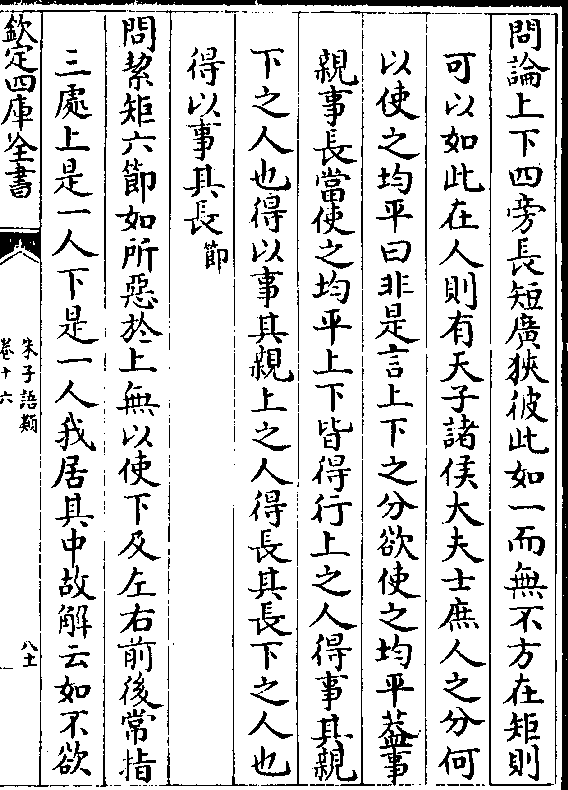 問論上下四旁長短廣狹彼此如一而無不方在矩則
可以如此在人則有天子諸侯大夫士庶人之分何
以使之均平曰非是言上下之分欲使之均平葢事
親事長當使之均平上下皆得行上之人得事其親
下之人也得以事其親上之人得長其長下之人也
得以事其長節
問絜矩六節如所惡於上無以使下及左右前後常指
三處上是一人下是一人我居其中故解云如不欲
欽定四庫全書
朱子語類
卷十六